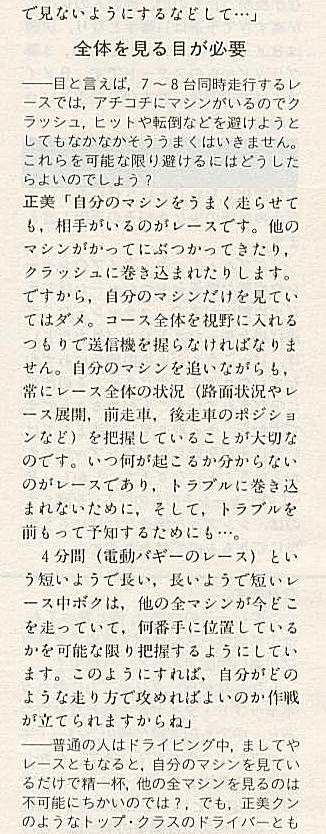 で見ないようにするなどして…」
全体を見る目が必要
──目と言えば，7～8台同時走行するレ
ースでは，アチコチにマシンがいるのでク
ラッシュ，ヒットや転倒などを避けようと
してもなかなかそううまくはいきません。
これらを可能な限り避けるにはどうした
らよいのでしょう？
正美「自分のマシンをうまく走らせて
も，相手がいるのがレースです。他の
マシンがかってにぶつかってきたり，
クラッシュに巻き込まれたりします。
ですから，自分のマシンだけを見てい
てはダメ。コース全体を視野に入れる
つもりで送信機を握らなければなりま
せん。自分のマシンを追いながらも，
常にレース全体の状況（路面状況やレ
ース展開，前走車，後走車のポジショ
ンなど）を把握していることが大切な
のです。いつ何が起こるか分からない
のがレースであり，トラブルに巻き込
まれないために，そして，トラブルを
前もって予知するためにも…。
　4分間（電動バギーのレース）とい
う短いようで長い，長いようで短いレ
ース中ボクは，他の全マシンが今どこ
を走っていて，何番手に位置している
かを可能な限り把握するようにしてい
ます。このようにすれば，自分がどの
ような走り方で攻めればよいのか作戦
が立てられますからね」
──普通の人はドライビング中，ましてや
レースともなると，自分のマシンを見てい
るだけで精一杯，他の全マシンを見るのは
不可能にちかいのでは？，でも，正美クン
のようなトップ・クラスのドライバーとも